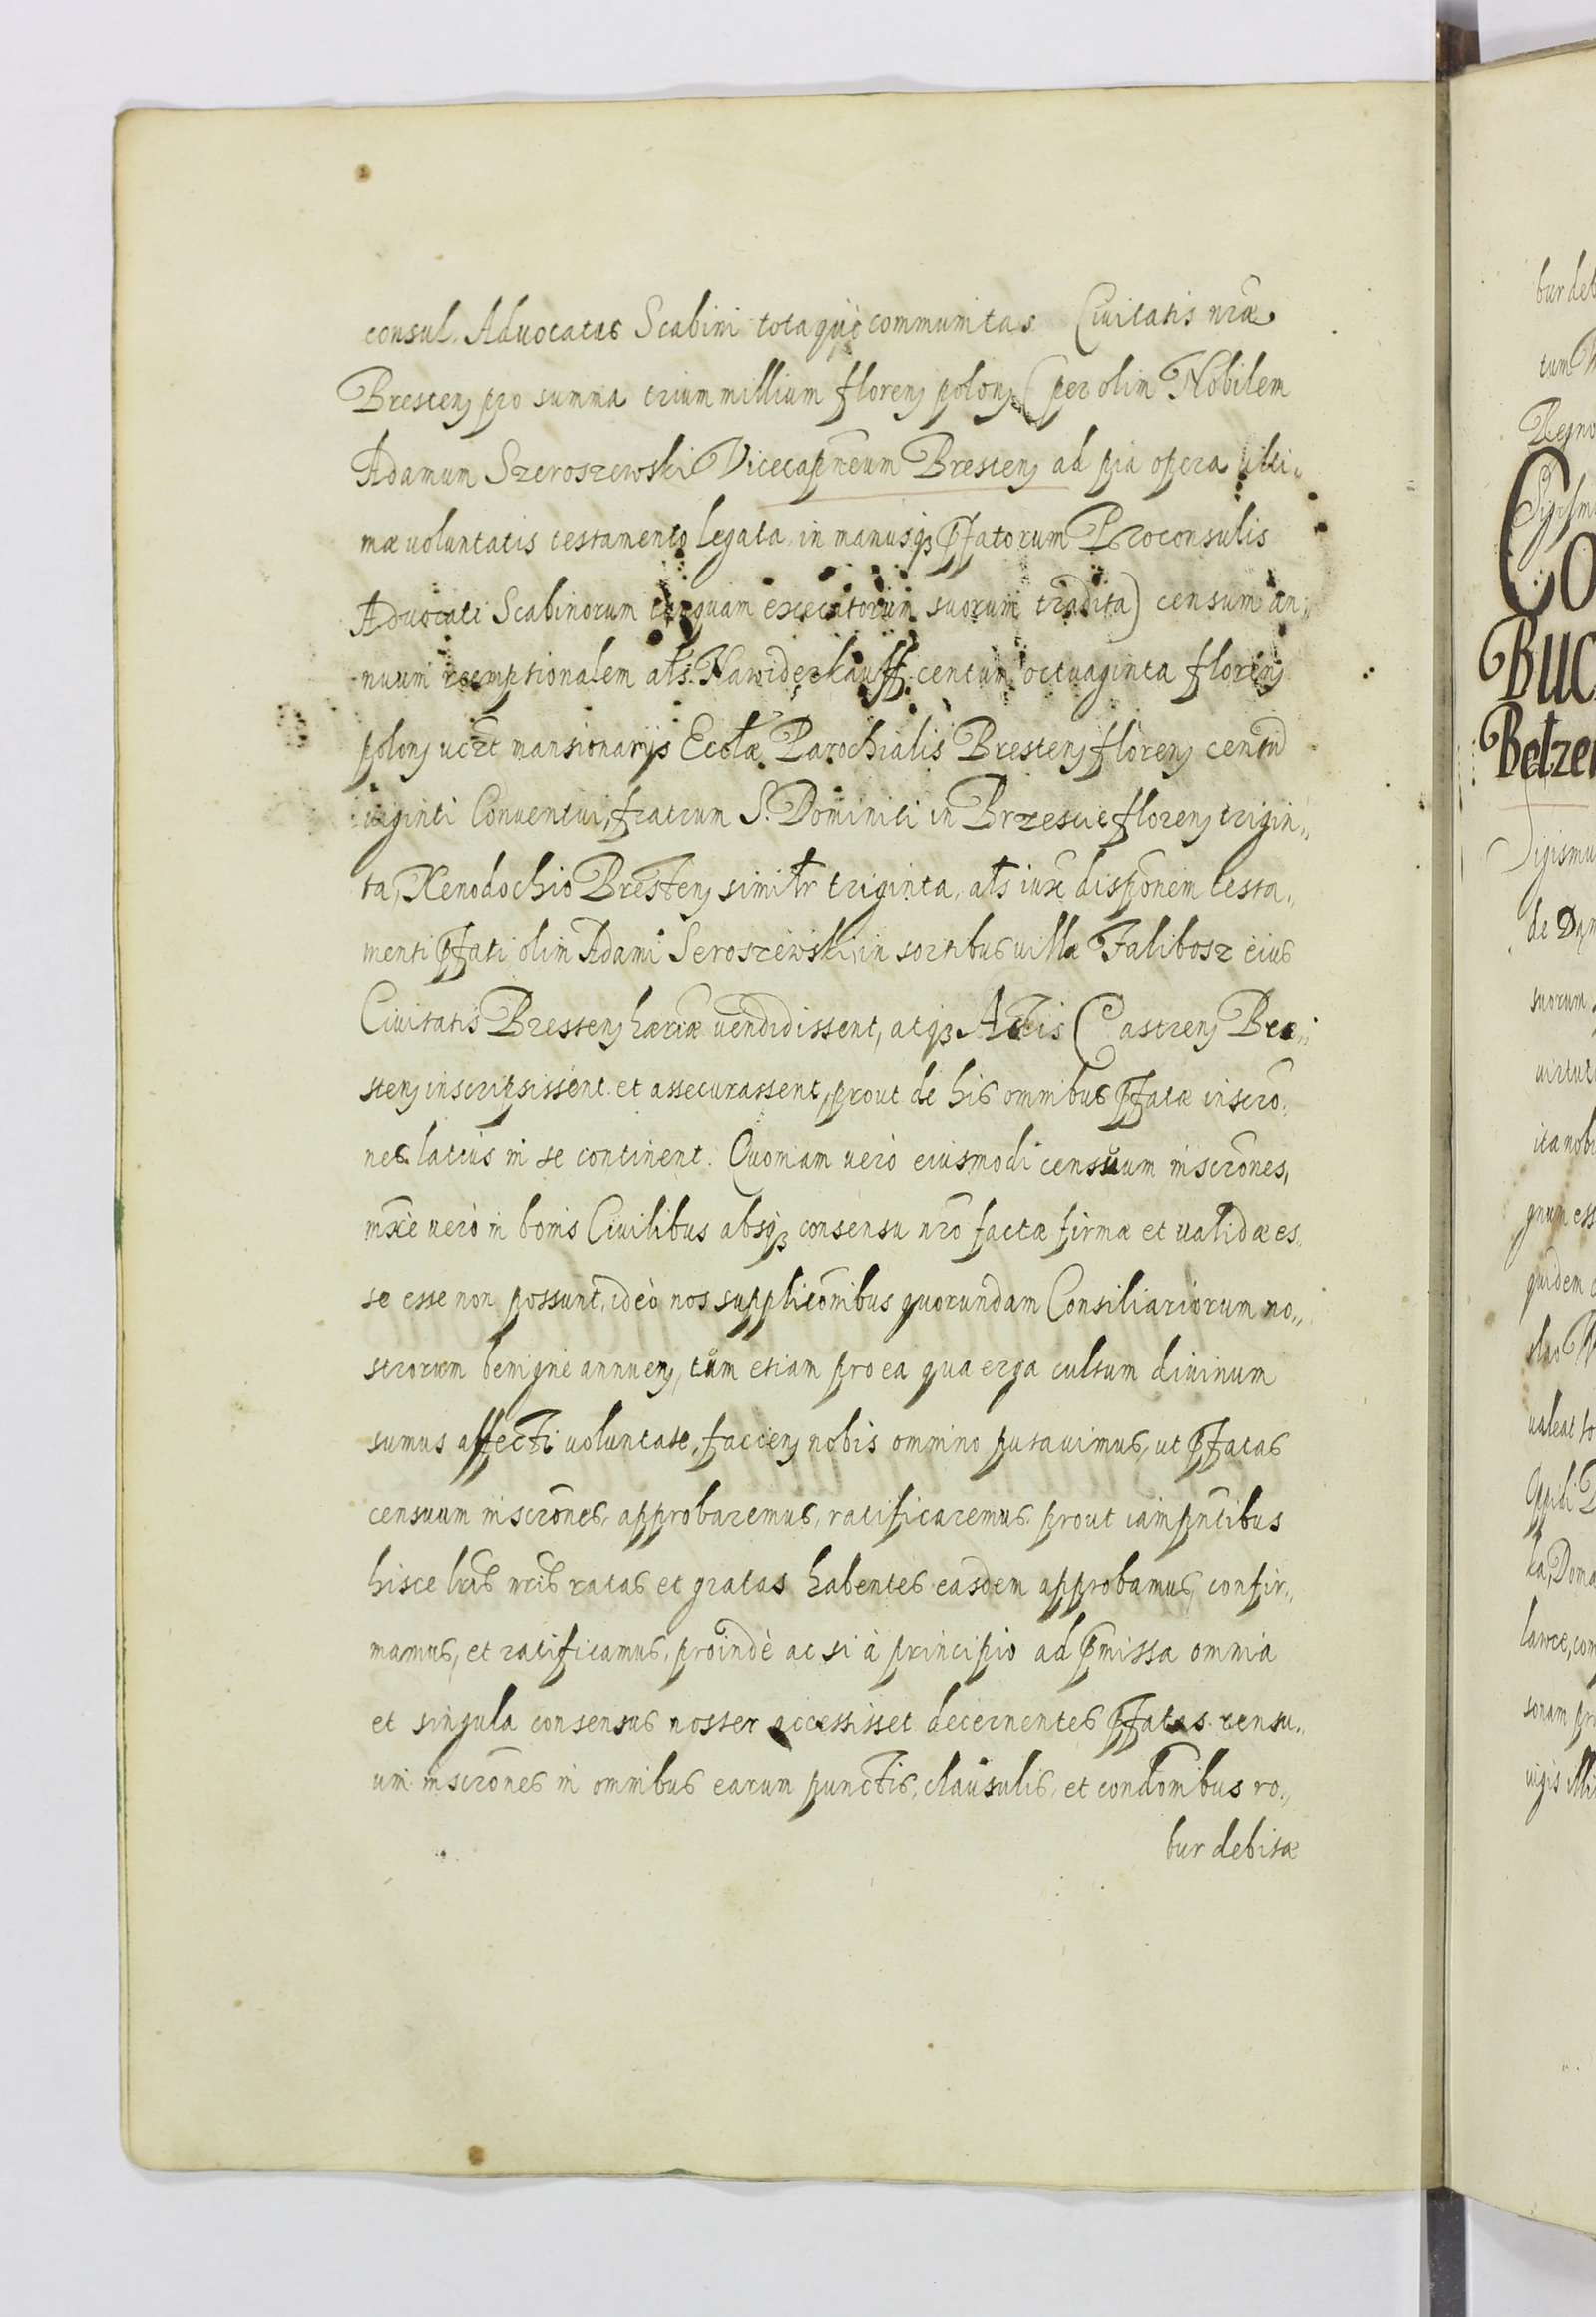 consul. Aduocatus Scabini totaquè communitas Ciuitatis nrãe
Bresteń pro summa trium millium floreń poloń (per olim Nobilem
Adamum Szeroszewski Vicecapñeum Bresteń ad pia opera ulti„
mæ uoluntatis testamento legata in manusqȝ pfatorum Proconsulis
Aduocati Scabinorum tanquam executorum suorum tradita) censum an„
nuum reemptionalem als. Nawiderkauff. centum octuaginta floreń
poloń ucżt mansionarijs Eccłæ Parochialis Bresteń floreń centũ
uiginti Conuentui, fratrum S. Dominici in Brzescie floreń trigin„
ta, Xenodochio Bresteń similr triginta, als iux̃ dispõnem testa„
menti pfati olim Adami Seroszewski, in sortibus uillæ Falibosz eius
Ciuitatis Bresteń hæriæ uendidissent, atqȝ Actis Castreń Bre„
steń inscripsissent et assecurassent, prout de his omnibus pfatæ inscrõ„
nes latius in se continent. Quoniam uerò eiusmodi censuum inscrõnes,
mx̃è uerò in bonis Ciuilibus absqȝ consensu nrõ factæ firmæ et ualidæ es„
se esse non possunt, ideò nos supplicõnibus quorundam Consiliariorum no„
strorum benignè annueń, tum etiam pro ea qua erga cultum diuinum
sumus affecti uoluntate, facień nobis omnino putauimus, ut pfatas
censuum inscrõnes, approbaremus, ratificaremus. prout iam pñtibus
hisce lris nris ratas et gratas habentes easdem approbamus, confir„
mamus, et ratificamus, proindè ac si à principio ad pmissa omnia
et singula consensus noster accessisset decernentes pfatas censu„
um inscrõnes in omnibus earum punctis, clausulis, et condõnibus ro„
bur debitæ
bur deb
Co
BUC
Betzen